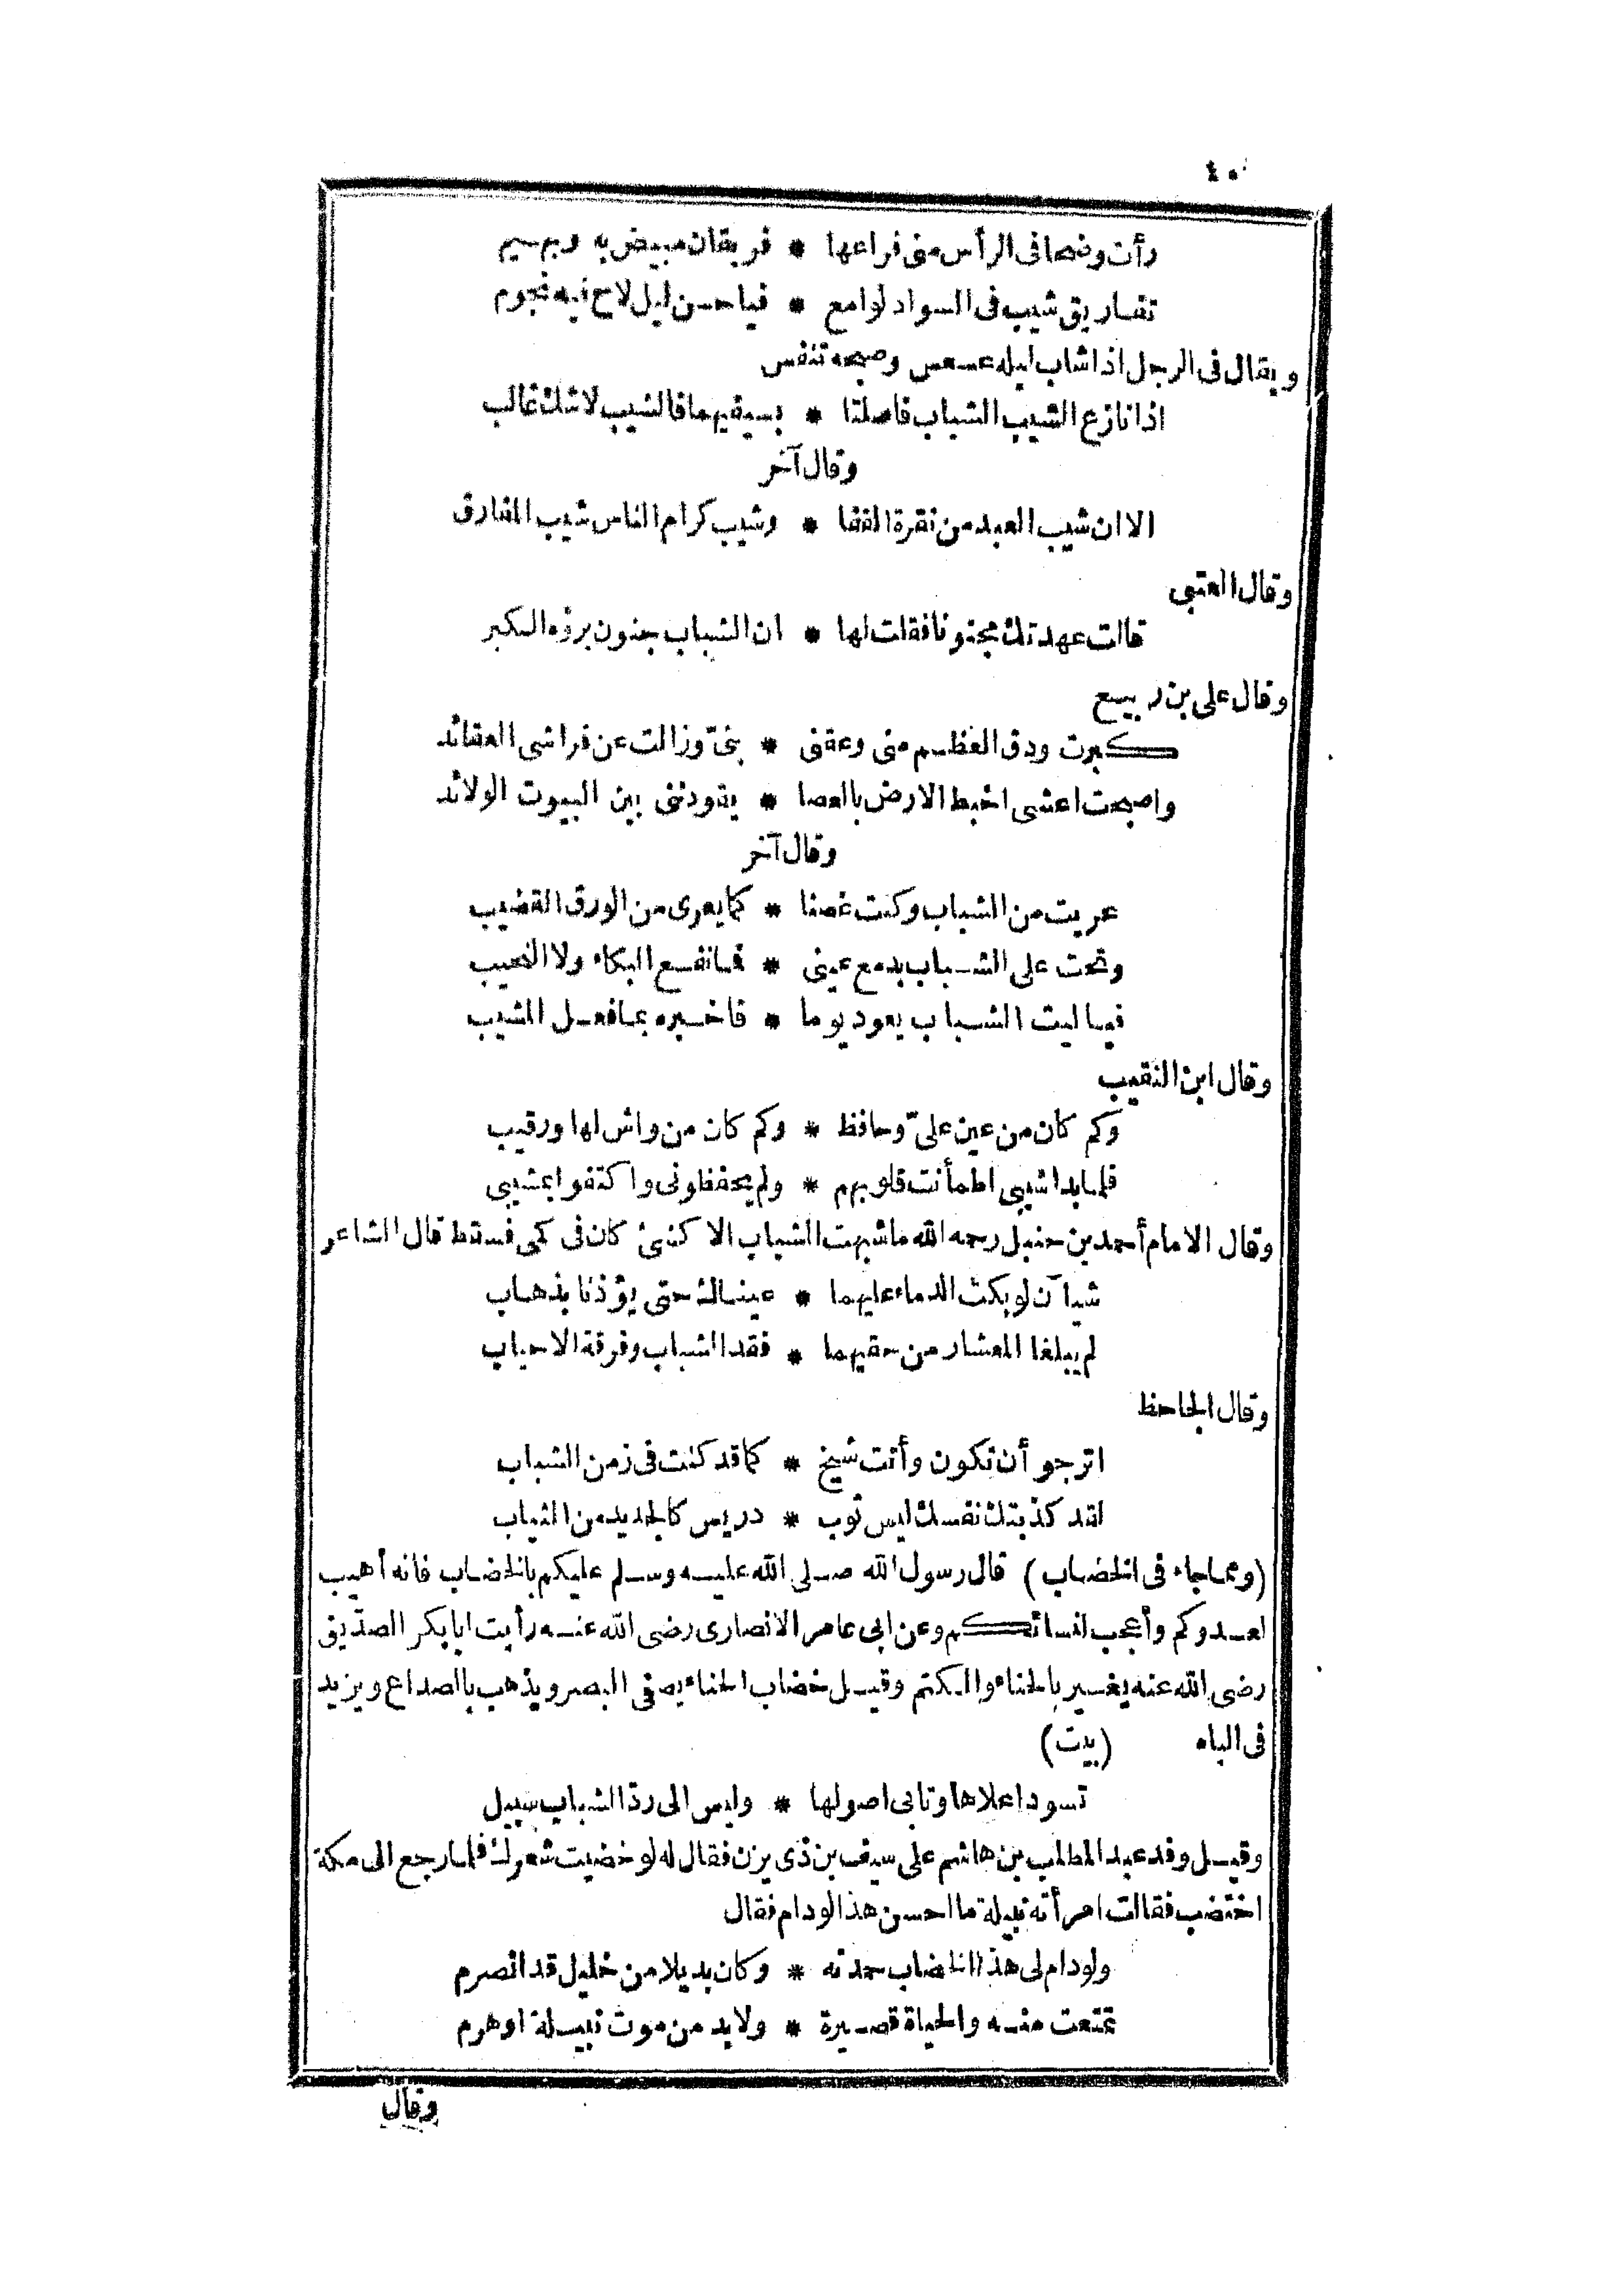 ٤٠
رأت وضحا فى الرأس منى فراعها * فريقان مبيض به وبهيم
تفاريق شيب فى السواد لوامع * فيا حسن ليل لاح فيه نجوم
ويقال فى الرجل اذا شاب ليله عسعس وصبحه تنفس
اذا نازع الشيب الشباب فاصلتا * بسيفيهما فالشيب لا شك غالب
وقال آخر
الا ان شيب العبد من نقرة القفا * وشيب كرام الناس شيب المفارق
وقال العتبى
قالت عهدتك مجنونا فقلت لها * ان الشباب جنون برؤه الكبر
وقال على بن ربيع
كبرت ودق العظم منى وعقنى * بنىّ وزالت عن فراشى العقائد
واصبحت اعشى اخبط الارض بالعصا * يقودننى بين البيوت الولائد
وقال آخر
عريت من الشباب وكنت غصنا * كما يعرى من الورق القضيب
ونحت على الشباب بدمع عينى * فما نفع البكاء ولا النحيب
فيا ليت الشباب يعود يوما * فاخبره بما فعل المشيب
وقال ابن النقيب
وكم كان من عين علىّ وحافظ * وكم كان من واش لها ورقيب
فلما بدا شيبى اطمأنت قلوبهم * ولم يحفظونى واكتفوا بمشيبى
وقال الامام أحمد بن حنبل رحمه الله ما شبهت الشباب الا كشئ كان فى كمى فسقط قال الشاعر
شيآن لو بكت الدماء عليهما * عيناك حتى يؤذنا بذهاب
لم يبلغا المعشار من حقيهما * فقد الشباب وفرقة الاحباب
وقال الجاحظ
اترجو أن تكون وأنت شيخ * كما قد كنت فى زمن الشباب
لقد كذبتك نفسك ليس ثوب * دريس كالجديد من الثياب
(ومما جاء فى الخضاب) قال رسول الله صلى الله عليه وسلم عليكم بالخضاب فانه أهيب
لعدوكم وأعجب لنسائكم وعن ابى عامر الانصارى رضى الله عنه رأيت ابا بكر الصدّيق
رضى الله عنه يغير بالحناء والكتم وقيل خضاب الحناء يصفى البصر ويذهب بالصداع ويزيد
فى الباه (بيت)
تسود اعلاها وتابى اصولها * وليس الى ردّ الشباب سبيل
وقيل وفد عبد المطلب بن هاشم على سيف بن ذى يزن فقال له لو خضبت شعرك فلما رجع الى مكة
اختضب فقالت امرأته نبيلة ما احسن هذا لو دام فقال
ولو دام لى هذا الخضاب حمدته * وكان بديلا من خليل قد انصرم
تمتعت منه والحياة قصيرة * ولا بد من موت نبيلة او هرم
وقال